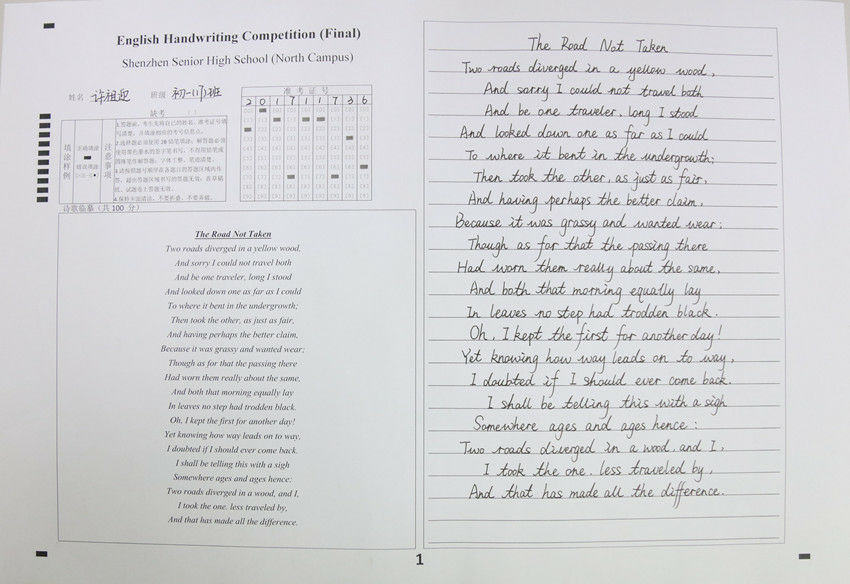 English Handwriting Competition (Final)
Shenzhen Senior High School (North Campus)
姓名 许祖迎 班级 初一(17)班
准考证号
2 0 1 7 1 1 7 3 6
缺考
填涂样例
正确填涂
错误填涂
注意事项
诗歌临摹（共 100 分）
The Road Not Taken
Two roads diverged in a yellow wood,
And sorry I could not travel both
And be one traveler, long I stood
And looked down one as far as I could
To where it bent in the undergrowth;
Then took the other, as just as fair,
And having perhaps the better claim,
Because it was grassy and wanted wear;
Though as for that the passing there
Had worn them really about the same,
And both that morning equally lay
In leaves no step had trodden black.
Oh, I kept the first for another day!
Yet knowing how way leads on to way,
I doubted if I should ever come back.
I shall be telling this with a sigh
Somewhere ages and ages hence:
Two roads diverged in a wood, and I,
I took the one, less traveled by,
And that has made all the difference.
The Road Not Taken
Two roads diverged in a yellow wood,
And sorry I could not travel both
And be one traveler, long I stood
And looked down one as far as I could
To where it bent in the undergrowth;
Then took the other, as just as fair,
And having perhaps the better claim,
Because it was grassy and wanted wear;
Though as for that the passing there
Had worn them really about the same,
And both that morning equally lay
In leaves no step had trodden black.
Oh, I kept the first for another day!
Yet knowing how way leads on to way,
I doubted if I should ever come back.
I shall be telling this with a sigh
Somewhere ages and ages hence:
Two roads diverged in a wood, and I,
I took the one, less traveled by,
And that has made all the difference.
1